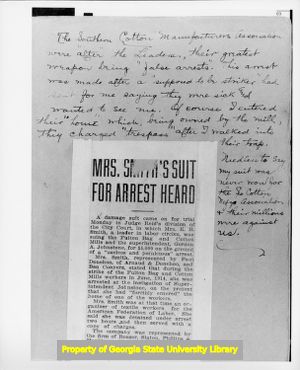 The Southern Cotton Manufacturers Association
were after the Leaders, their greatest
weapon being "false arrests". This arrest
was made after a supposed to be striker had
sent for me saying they were sick &
wanted to see me. Of course I entered
their "home" which, being owned by the mill,
they charged "trespass" after I walked into
their trap.
Needless to say
my suit was
never won for
the So Cotton
Mfg Association
& their millions
were against
us.
MRS. SMITH'S SUIT
FOR ARREST HEARD
A damage suit came on for trial
Monday in Judge Reid's division of
the City Court, in which Mrs. E. B.
Smith, a leader in labor circles, was
suing the Fulton Bag and Cotton
Mills and the superintendent, Gordon
A. Johnstone, for $5,000 on the ground
of a "careless and pernicious" arrest.
Mrs. Smith, represented by Paul
Donehoo, of Arnaud & Donehoo, and
Dan Conyers, stated that during the
strike of the Fulton Bag and Cotton
Mills workers in June, 1914, she was
arrested at the instigation of Super-
intendent Johnstone, on the pretext
that she had "forcibly entered" the
home of one of the workers.
Mrs. Smith was at that time an or-
ganizer of textile workers for the
American Federation of Labor. She
said she was detained under arrest
two hours and then served with a
copy of charges.
The company was represented by
the firm of Rosser, Slaton, Phillips &
Property of Georgia State University Library